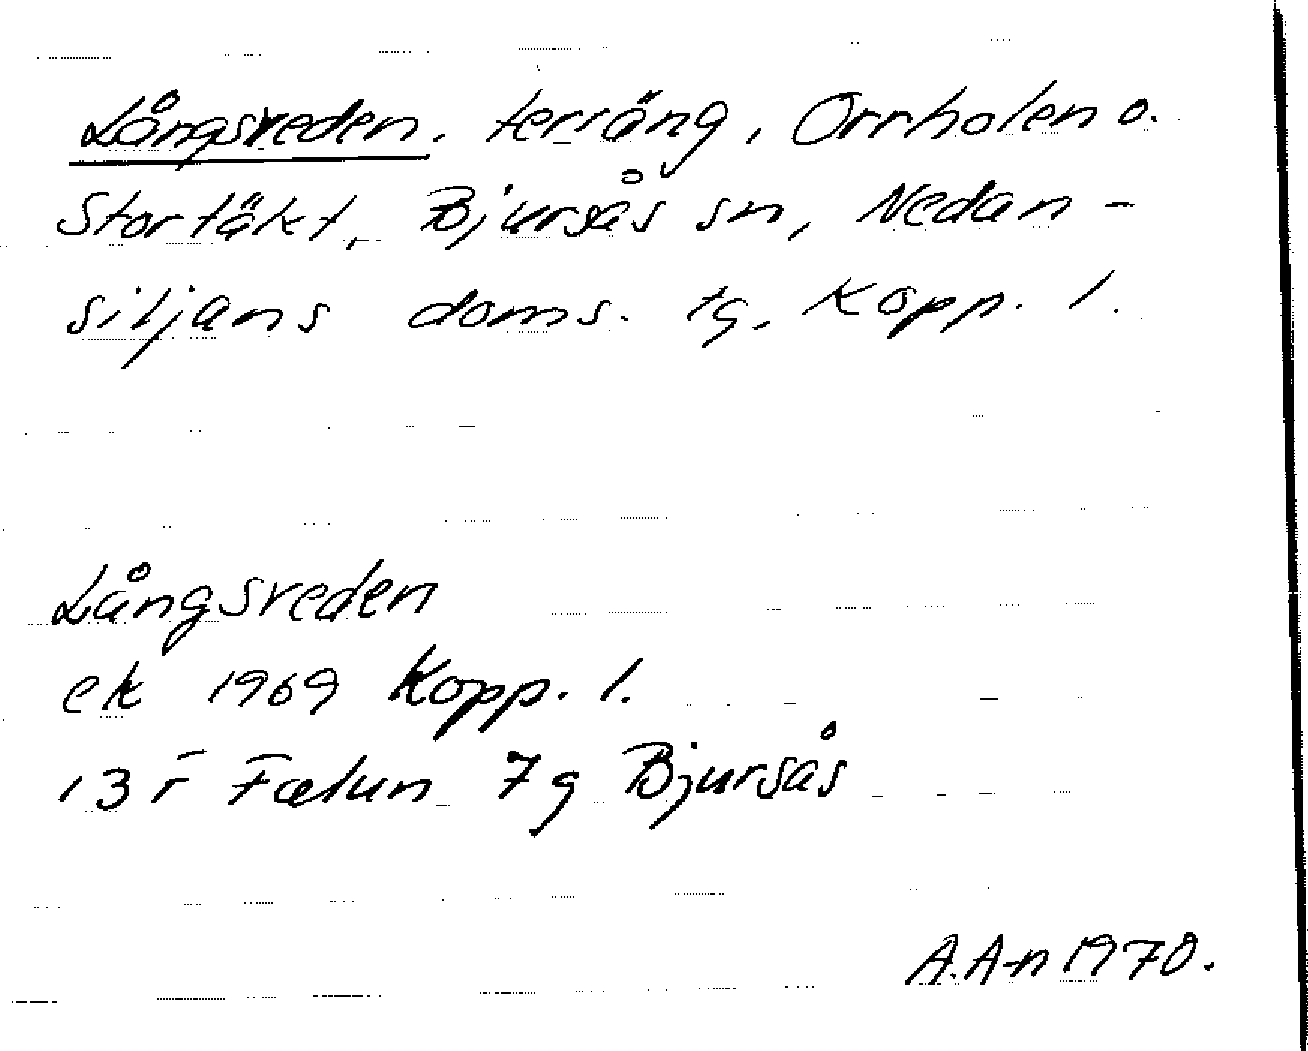 Långsveden. terräng, Orrholen o.
Stortäkt, Bjursås sn, Nedan-
siljans doms. tg, Kopp. l.
Långsveden
ek 1969 Kopp. l.
13 F Falun 7 g Bjursås
A. A-n 1970.